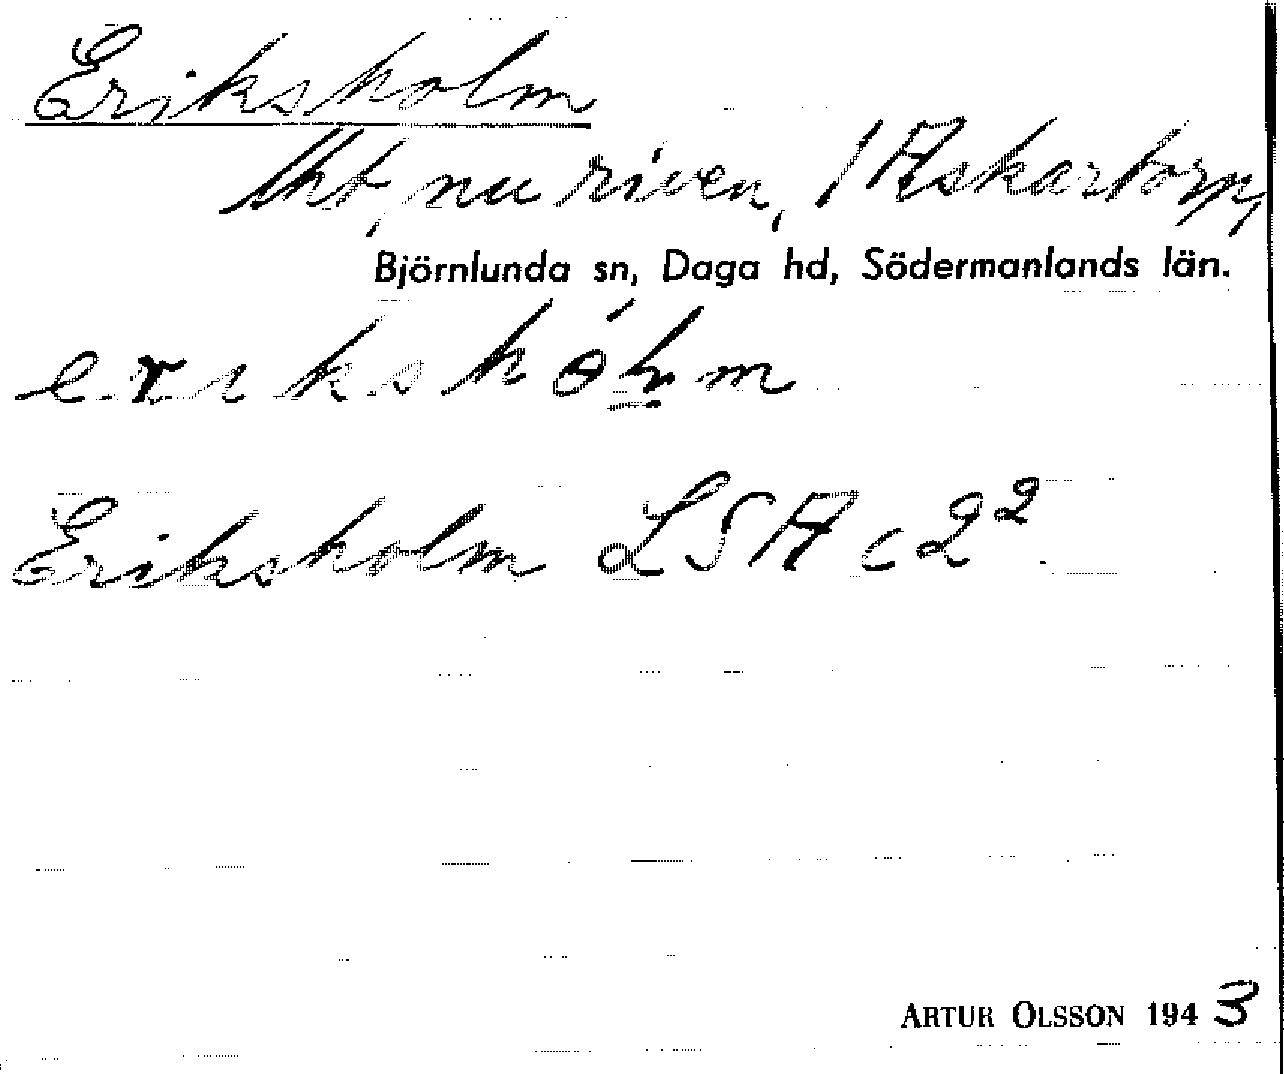 Eriksholm
lht, nu riven, 1 Askartorp,
Björnlunda sn, Daga hd, Södermanlands län.
erikshòlm
Eriksholm LSA c2²
ARTUR OLSSON 1943